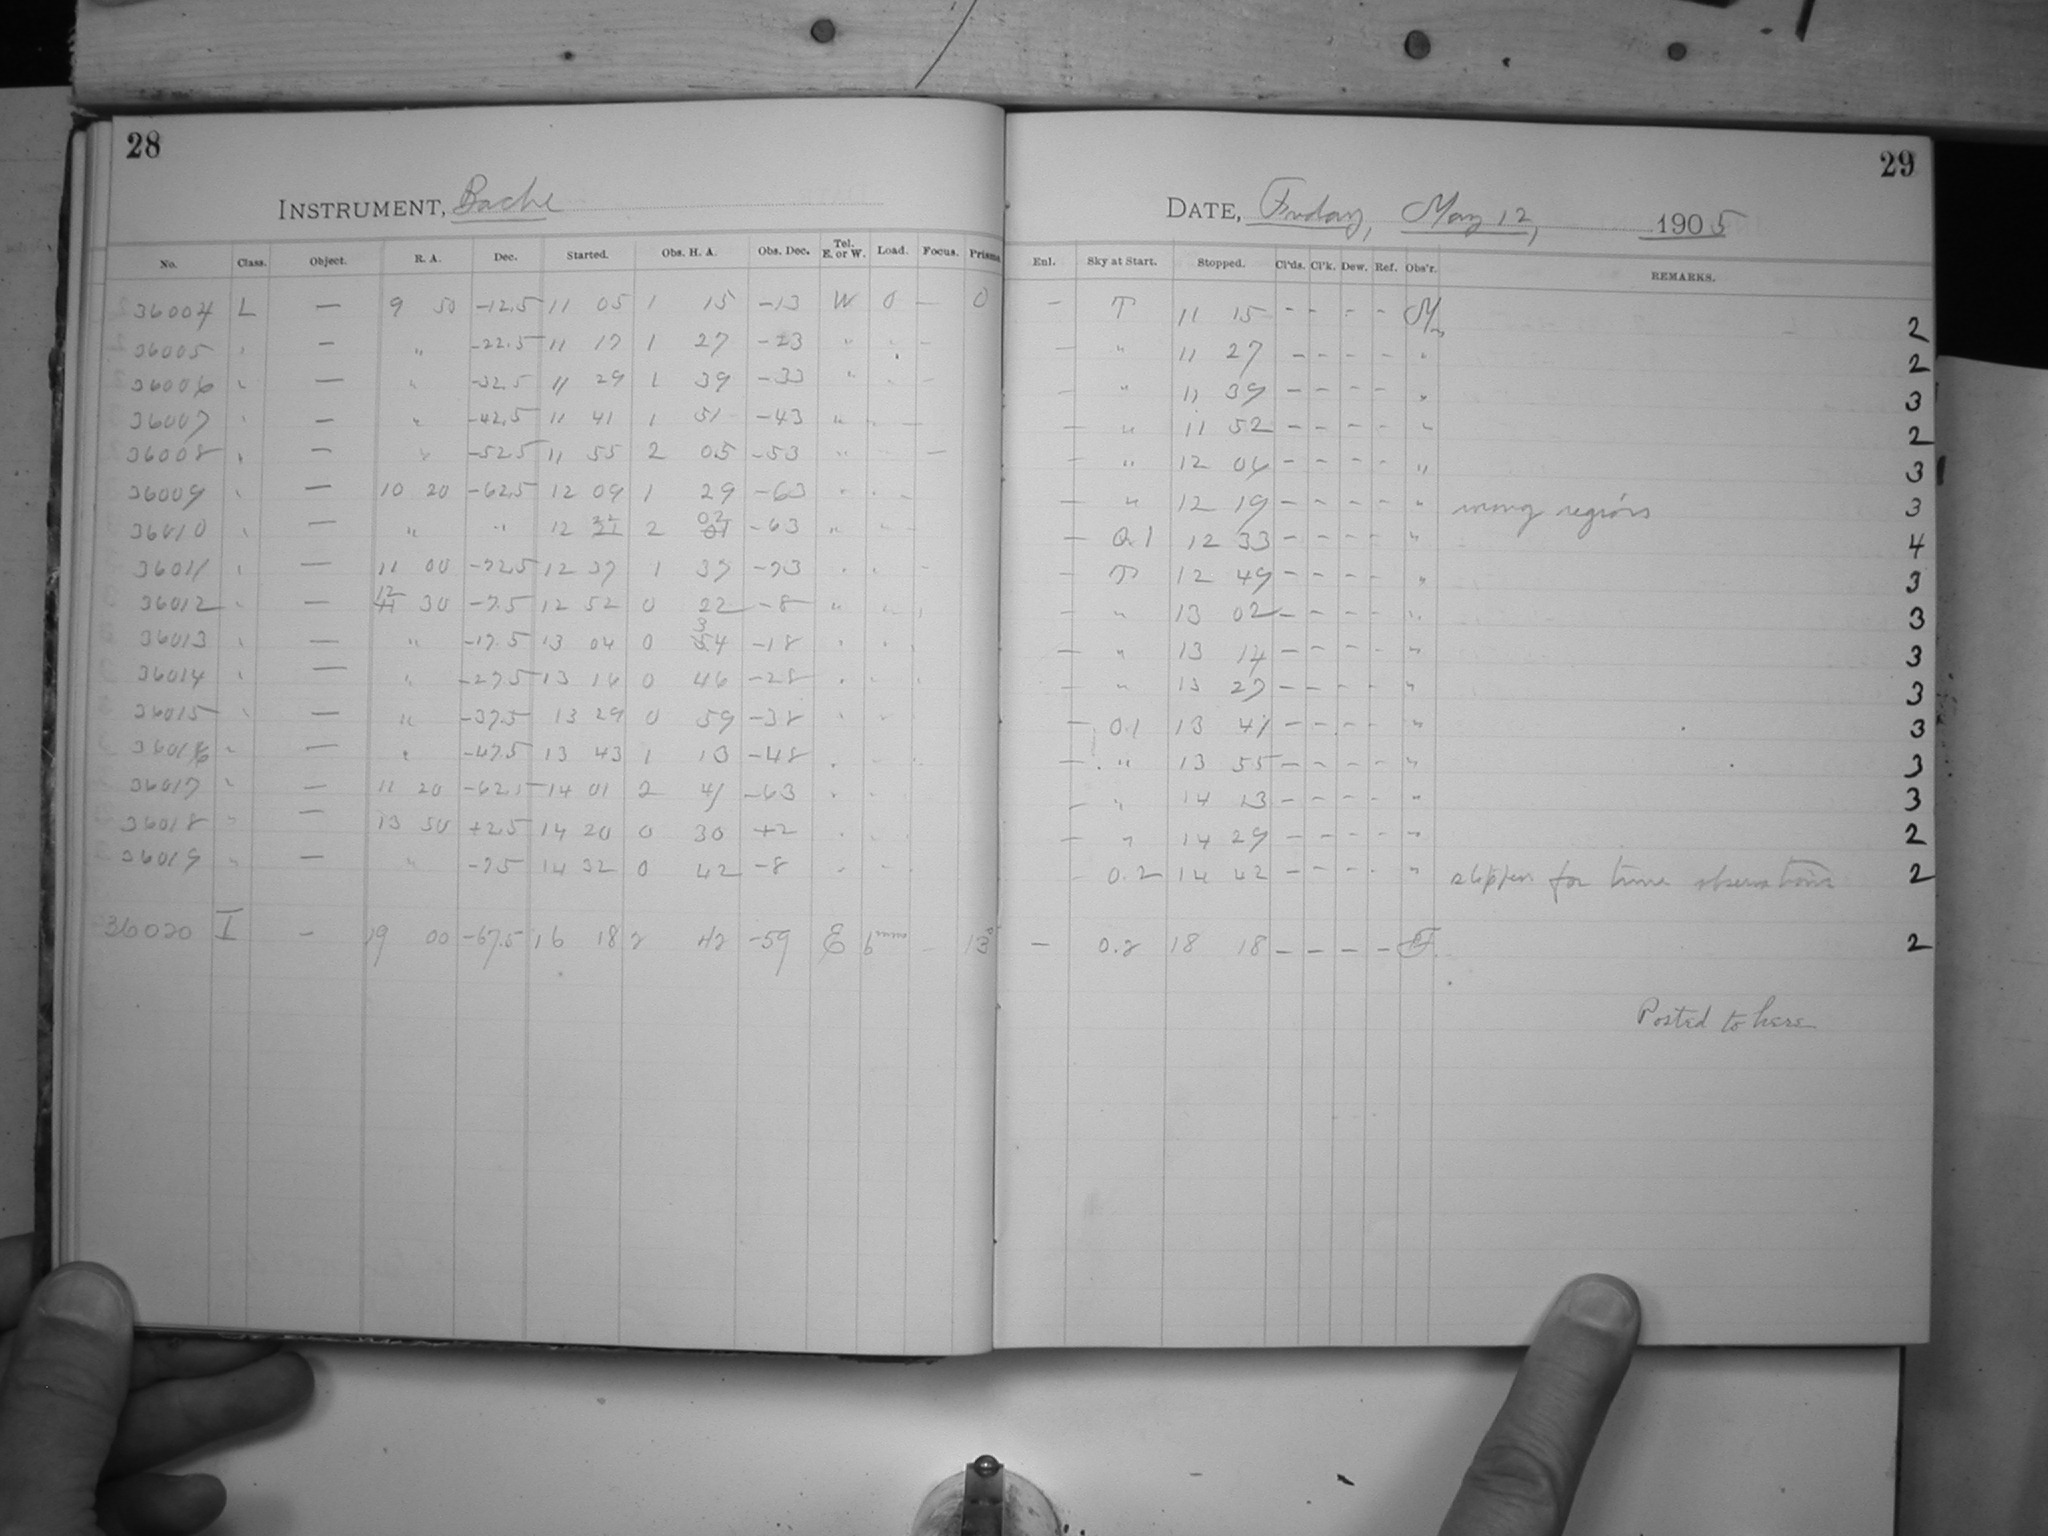 28
INSTRUMENT, Bache
No. Class. Object. R. A. Dec. Started. Obs. H. A. Obs. Dec. Tel. E. or W. Load. Focus. Prisms.
36004 L — 9 50 -12.5 11 05 1 15 -13 W 0 — 0
36005 " — " -22.5 11 17 1 27 -23 " " —
36006 " — " -32.5 11 29 1 39 -33 " " —
36007 " — " -42.5 11 41 1 51 -43 " " —
36008 " — " -52.5 11 55 2 05 -53 " " —
36009 " — 10 20 -62.5 12 09 1 29 -63 " " —
36010 " — " " 12 22 2 02 -63 " " —
36011 " — 11 00 -72.5 12 37 1 37 -73 " " —
36012 " — 12 30 -7.5 12 52 0 22 -8 " "
36013 " — " -17.5 13 04 0 34 -18 " "
36014 " — " -27.5 13 16 0 46 -28 " "
36015 " — " -37.5 13 29 0 59 -38 " "
36016 " — " -47.5 13 43 1 13 -48 " "
36017 " — 11 20 -62.5 14 01 2 41 -63 " "
36018 " — 13 50 +2.5 14 20 0 30 +2 " "
36019 " — " -7.5 14 32 0 42 -8 " "
36020 I — 19 00 -67.5 16 18 2 42 -59 E 6mm — 13°
29
DATE, Friday, May 12, 1905
Enl. Sky at Start. Stopped. Cl'ds. Cl'k. Dew. Ref. Obs'r. REMARKS.
— T 11 15 - - - - M 2
— " 11 27 - - - - " 2
— " 11 39 - - - - " 3
— " 11 52 - - - - " 2
— " 12 06 - - - - " 3
— " 12 19 - - - - " wrong region 3
— 0.1 12 33 - - - - " 4
— T 12 49 - - - - " 3
— " 13 02 - - - - " 3
— " 13 14 - - - - " 3
— " 13 27 - - - - " 3
— 0.1 13 41 - - - - " 3
— " 13 55 - - - - " 3
— " 14 13 - - - - " 3
— " 14 29 - - - - " 2
0.2 14 42 - - - - " for time observations 2
— 0.2 18 18 - - - - F. 2
Posted to here